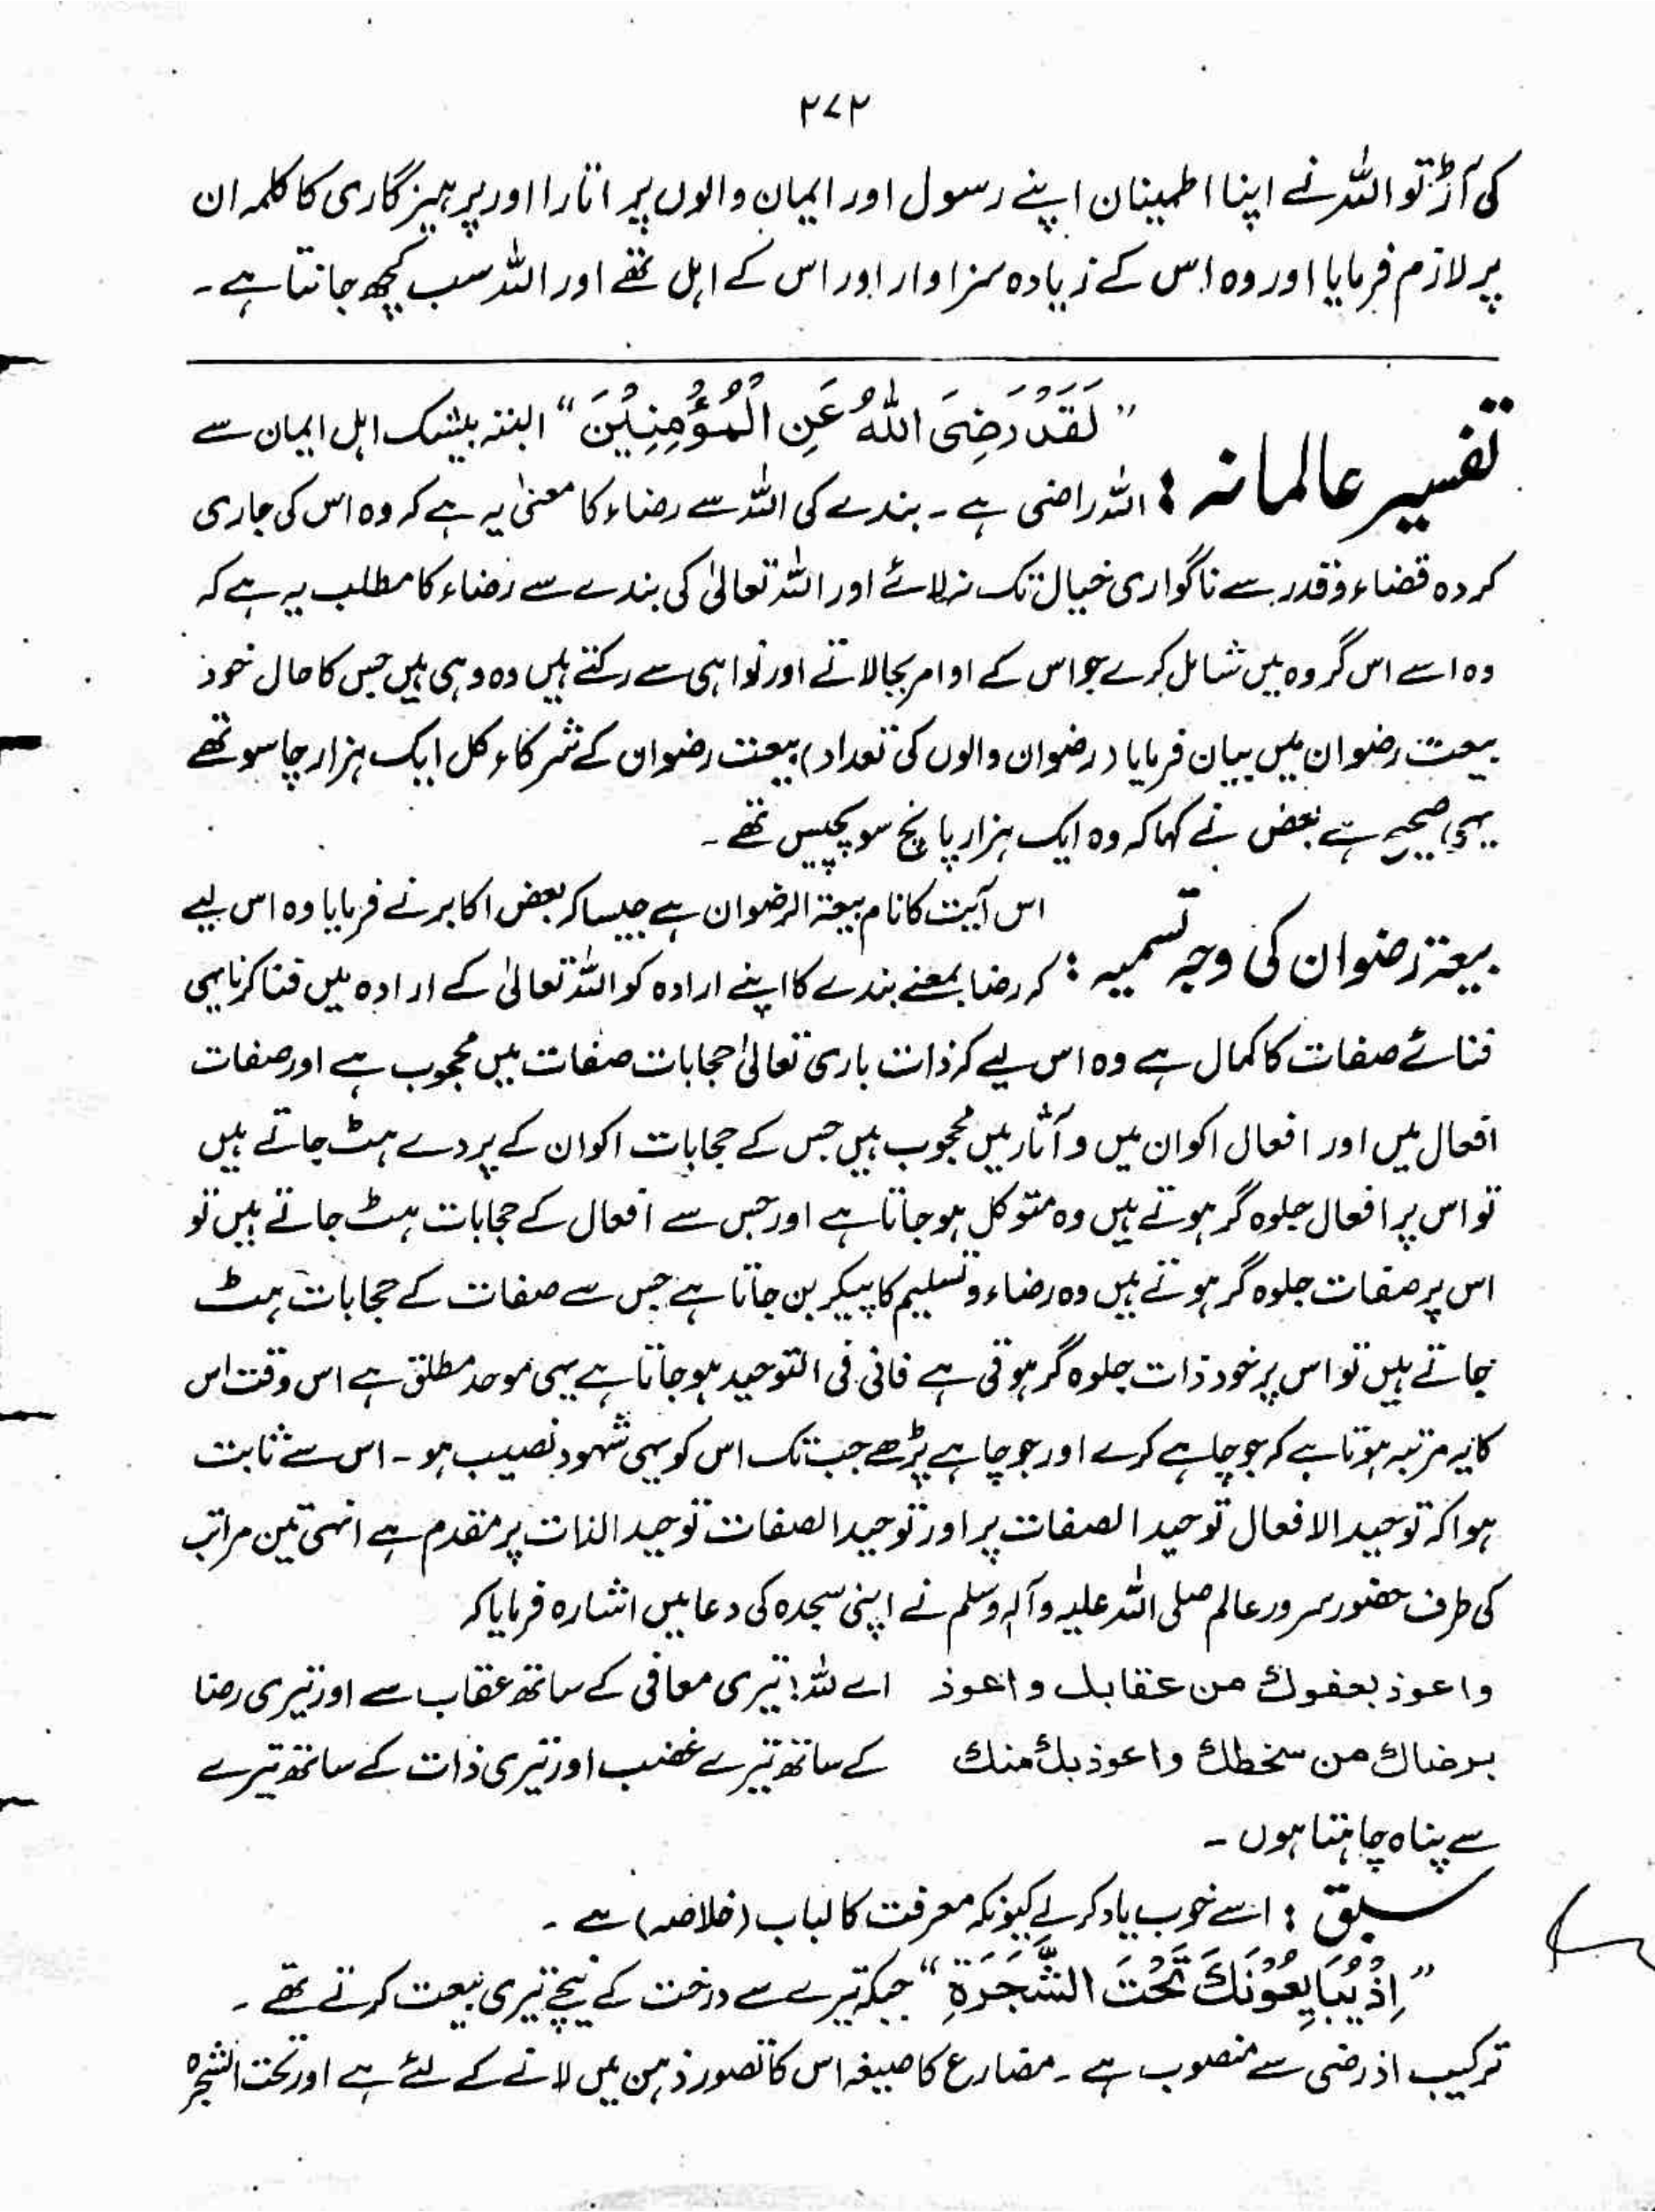 ۲۷۲
کی آڑ تو اللہ نے اپنا اطمینان اپنے رسول اور ایمان والوں پر اتارا اور پرہیزگاری کا کلمہ ان
پر لازم فرمایا اور وہ اس کے زیادہ سزاوار اور اس کے اہل تھے اور اللہ سب کچھ جانتا ہے۔
تفسیر عالمانہ : ”لَقَدْ رَضِیَ اللّٰہُ عَنِ الْمُؤْمِنِیْنَ“ البتہ بیشک اہل ایمان سے
اللہ راضی ہے۔ بندے کی اللہ سے رضاء کا معنیٰ یہ ہے کہ وہ اس کی جاری
کردہ قضاء و قدر سے ناگواری خیال تک نہ لائے اور اللہ تعالیٰ کی بندے سے رضاء کا مطلب یہ ہے کہ
وہ اسے اس گروہ میں شامل کرے جو اس کے اوامر بجا لاتے اور نواہی سے رکتے ہیں وہ وہی ہیں جس کا حال خود
بیعت رضوان میں بیان فرمایا (رضوان والوں کی تعداد) بیعت رضوان کے شرکاء کل ایک ہزار چار سو تھے
یہی صحیح ہے بعض نے کہا کہ وہ ایک ہزار پانچ سو پچیس تھے۔
بیعۃ رضوان کی وجہ تسمیہ : اس آیت کا نام بیعۃ الرضوان ہے جیسا کہ بعض اکابر نے فرمایا وہ اس لیے
کہ رضا بمعنے بندے کا اپنے ارادہ کو اللہ تعالیٰ کے ارادہ میں فنا کرنا یہی
فنائے صفات کا کمال ہے وہ اس لیے کہ ذات باری تعالیٰ حجابات صفات میں محجوب ہے اور صفات
افعال میں اور افعال اکوان میں و آثار میں محجوب ہیں جس کے حجابات اکوان کے پردے ہٹ جاتے ہیں
تو اس پر افعال جلوہ گر ہوتے ہیں وہ متوکل ہو جاتا ہے اور جس سے افعال کے حجابات ہٹ جاتے ہیں تو
اس پر صفات جلوہ گر ہوتے ہیں وہ رضاء و تسلیم کا پیکر بن جاتا ہے جس سے صفات کے حجابات ہٹ
جاتے ہیں تو اس پر خود ذات جلوہ گر ہوتی ہے فانی فی التوحید ہو جاتا ہے یہی موحد مطلق ہے اس وقت اس
کا یہ مرتبہ ہوتا ہے کہ جو چاہے کرے اور جو چاہے پڑھے جب تک اس کو یہی شہود نصیب ہو۔ اس سے ثابت
ہوا کہ توحید الافعال توحید الصفات پر اور توحید الصفات توحید الذات پر مقدم ہے انہی تین مراتب
کی طرف حضور سرور عالم صلی اللہ علیہ وآلہ وسلم نے اپنی سجدہ کی دعا میں اشارہ فرمایا کہ
واعوذ بعفوك من عقابك واعوذ اے اللہ! تیری معافی کے ساتھ عقاب سے اور تیری رضا
برضاك من سخطك واعوذ بك منك کے ساتھ تیرے غضب اور تیری ذات کے ساتھ تیرے
سے پناہ چاہتا ہوں۔
سبق : اسے خوب یاد کر لے کیونکہ معرفت کا لباب (خلاصہ) ہے۔
”اِذْ یُبَایِعُوْنَكَ تَحْتَ الشَّجَرَۃِ“ جبکہ تیرے سے درخت کے نیچے تیری بیعت کرتے تھے۔
ترکیب اذ رضی سے منصوب ہے۔ مضارع کا صیغہ اس کا تصور ذہن میں لانے کے لئے ہے اور تحت الشجرہ